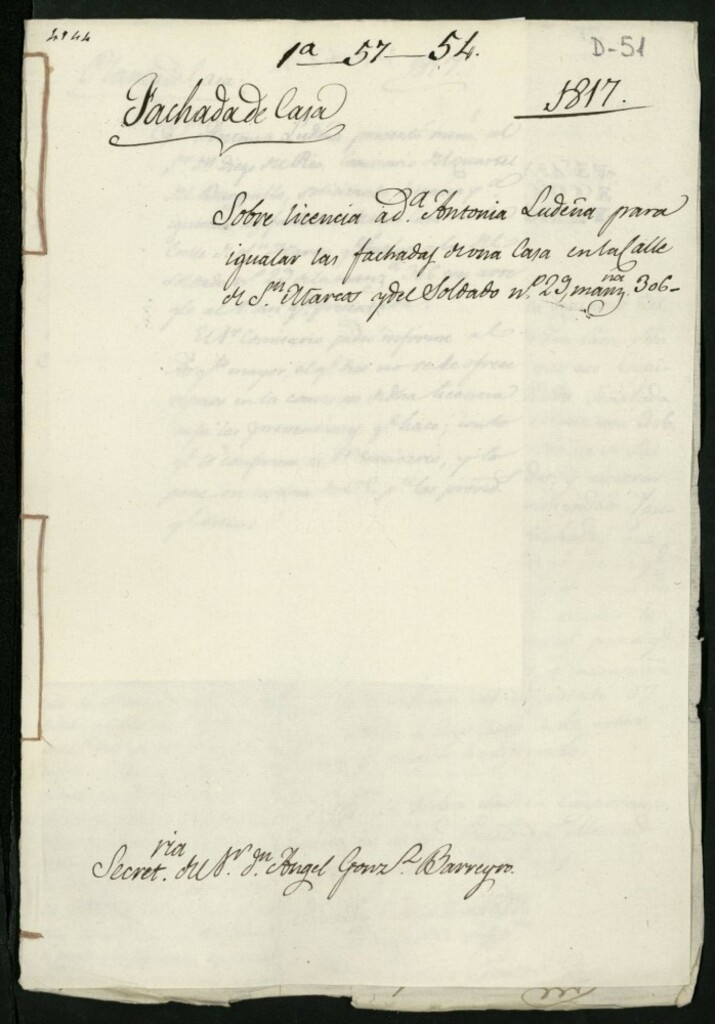 4944
1ª 57-54.
D-51
Fachada de Casa
1817.
Sobre licencia a d.ª Antonia Ludeña para
igualar las fachadas de una Casa en la Calle
de S.n Marcos y del Soldado n.º 29, manz.na 306-
Secret.ria del S.r d.n Angel Gonz.z Barreyro.